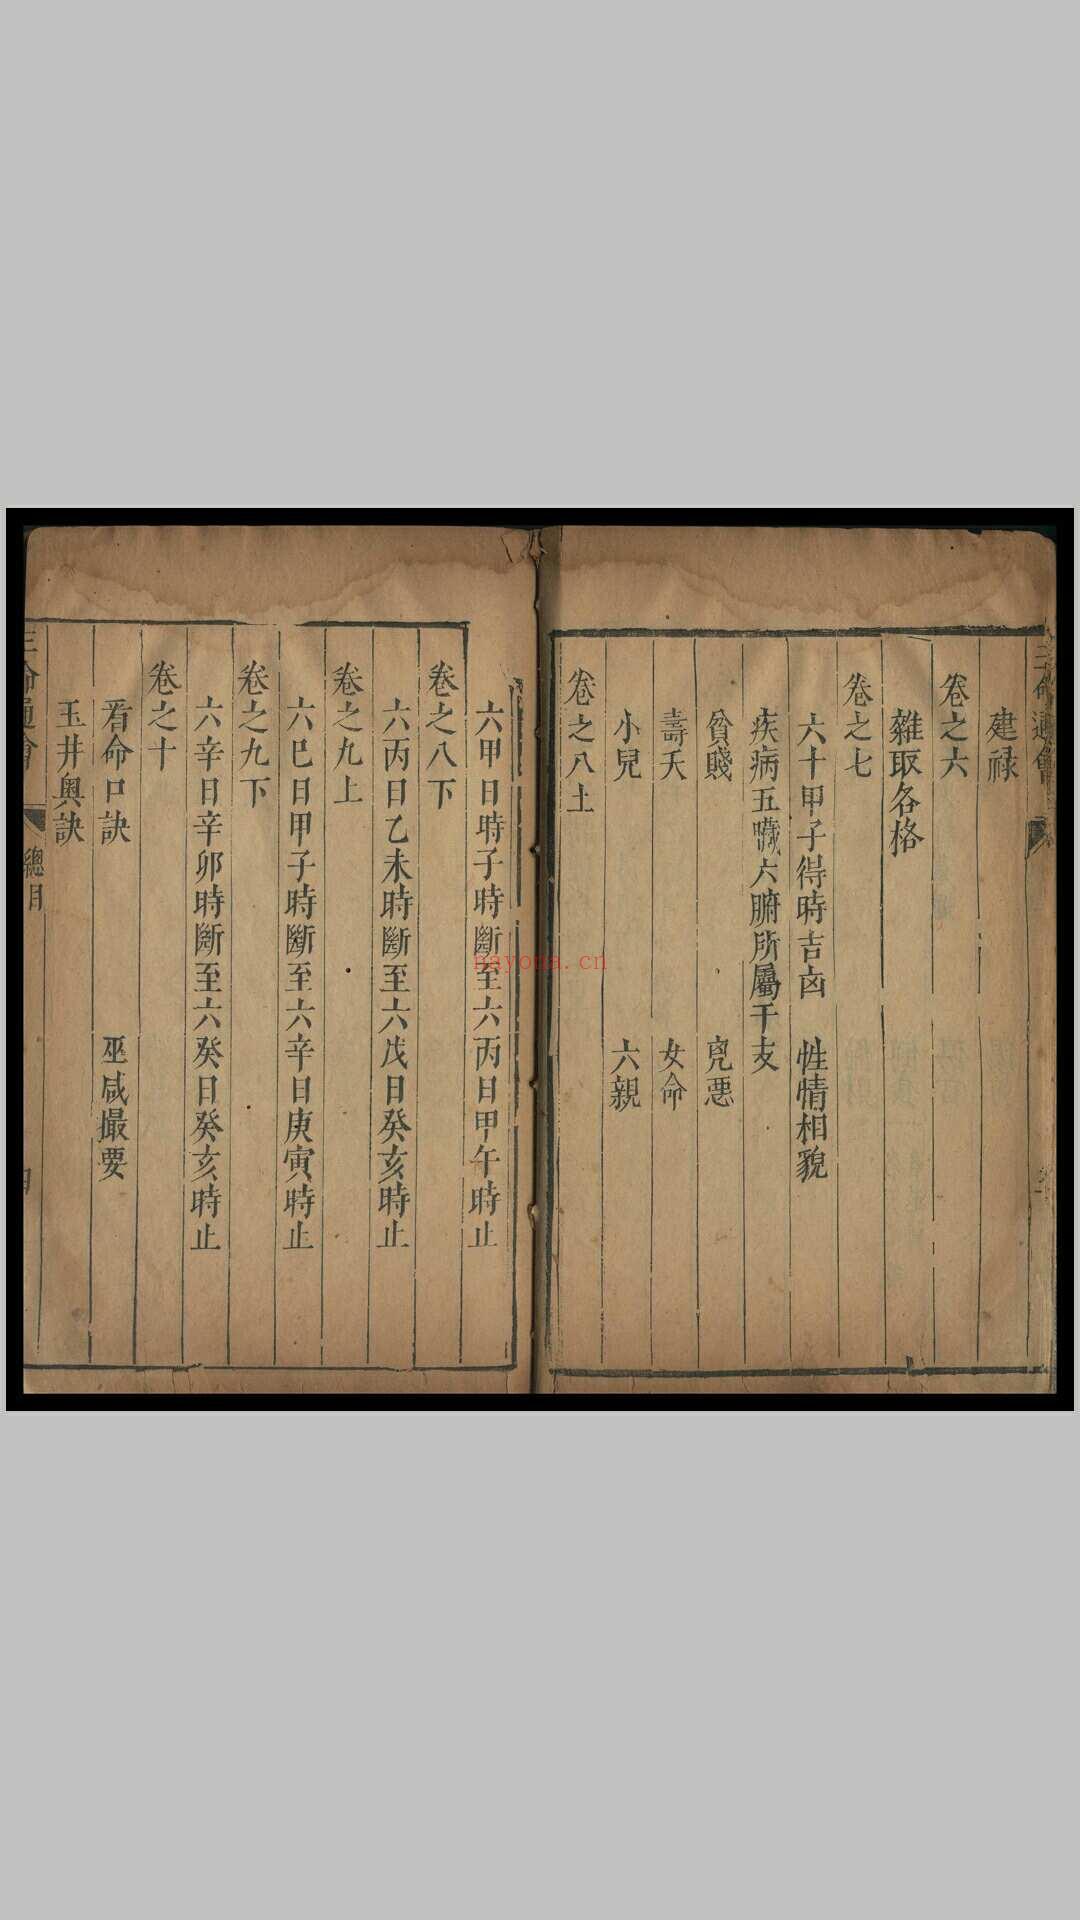 三命通會
建祿
卷之六
雜取各格
卷之七
六十甲子得時吉凶 性情相貌
疾病五臟六腑所屬干支
貧賤 凶惡
壽夭 女命
小兒 六親
卷之八上
六甲日時子時斷至六丙日甲午時止
卷之八下
六丙日乙未時斷至六戊日癸亥時止
卷之九上
六巳日甲子時斷至六辛日庚寅時止
卷之九下
六辛日辛卯時斷至六癸日癸亥時止
卷之十
看命口訣 巫咸撮要
玉井奧訣
三命通會 總目
nayona.cn